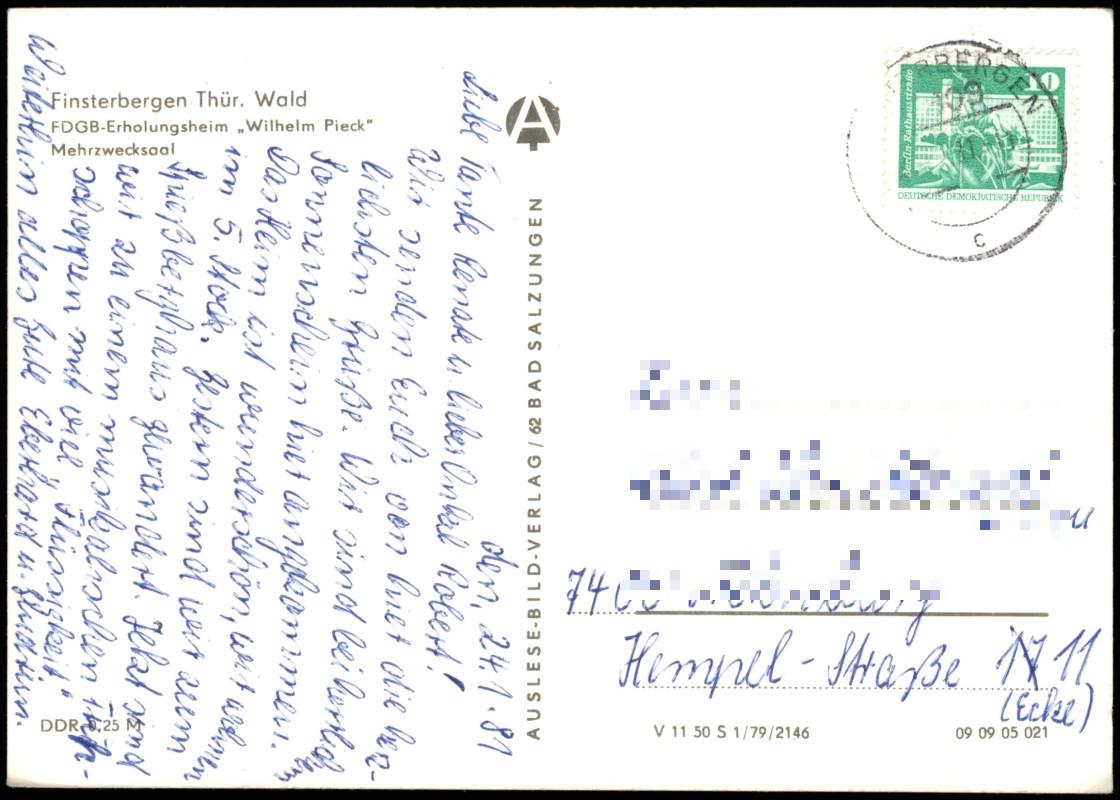 Finsterbergen Thür. Wald
FDGB-Erholungsheim „Wilhelm Pieck“
Mehrzwecksaal
den, 24.1.81
Liebe Tante Renate u. lieber Onkel Robert!
Wir senden Euch von hier die herz-
lichsten Grüße. Wir sind bei herrl.
Sonnenschein hier angekommen.
Das Heim ist wunderschön, wir wohnen
im 5. Stock. Gestern sind wir zum
Spießberghaus gewandert. Jetzt sind
wir zu einem musikalischen Früh-
schoppen mit viel „Flüssigkeit“
Weiterhin alles Gute Eberhard u.
DDR 0,25 M
AUSLESE-BILD-VERLAG / 62 BAD SALZUNGEN
BERGEN
c
10
Berlin-Rathausstraße
DEUTSCHE DEMOKRATISCHE REPUBLIK
74
Hempel-Straße 11
(Ecke)
V 11 50 S 1/79/2146
09 09 05 021